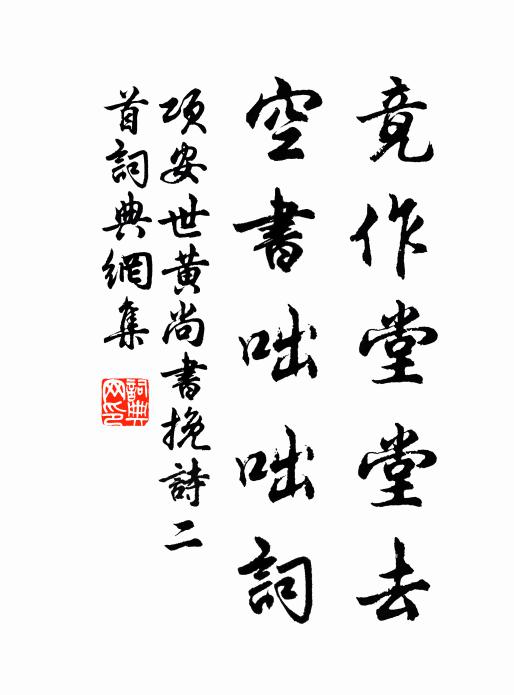 竟作堂堂去
空書咄咄詞
項安世黄尚書挽詩二
首詞典網集
詞典網印